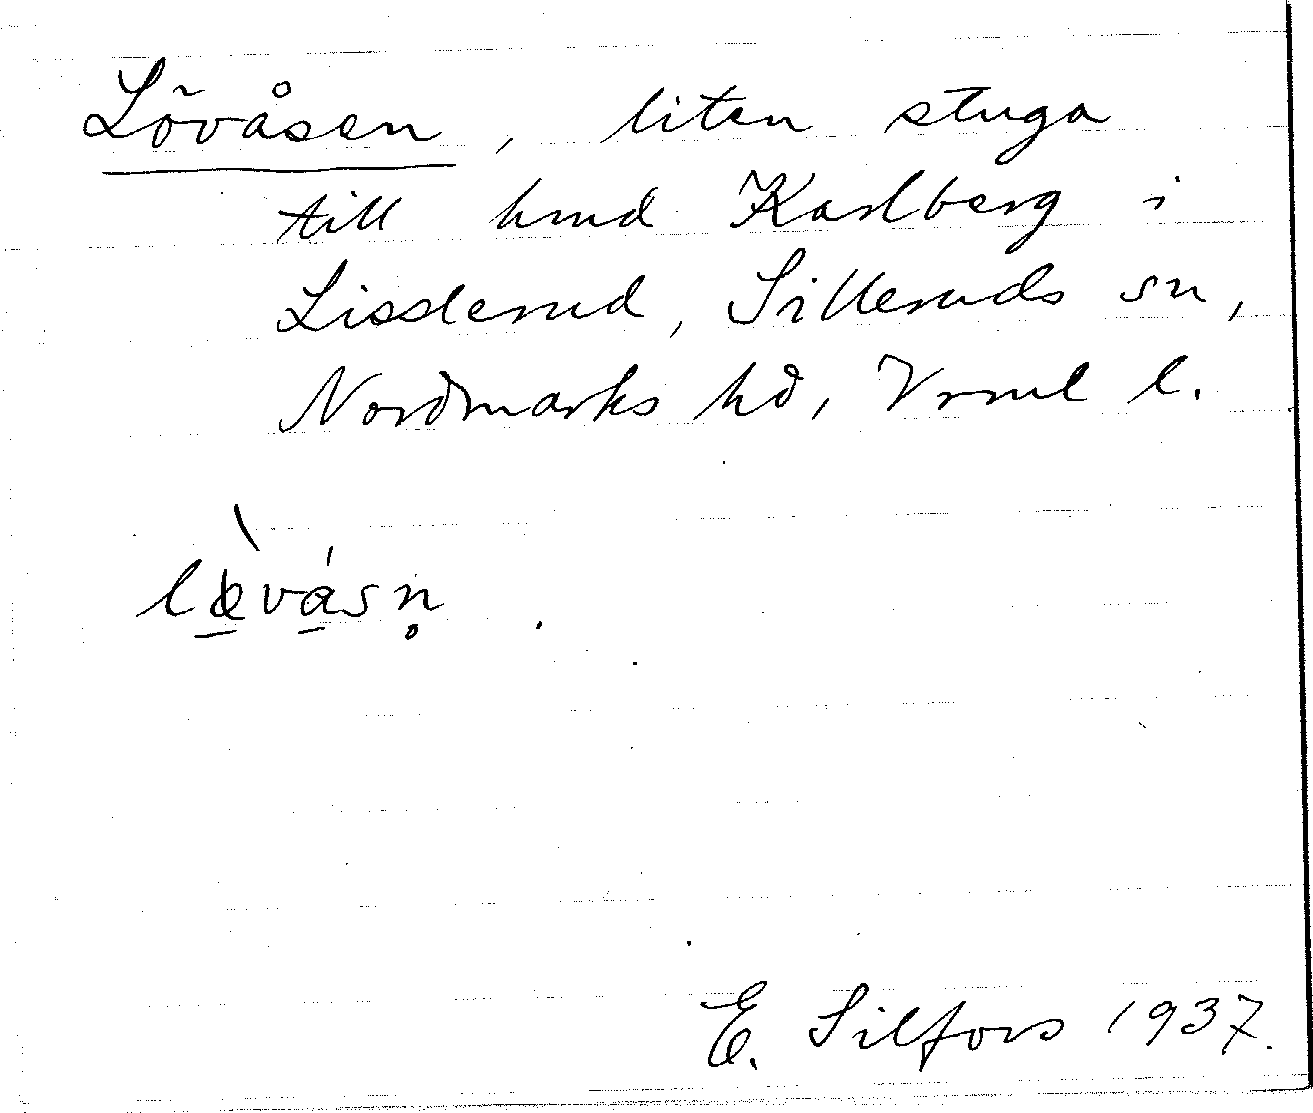 Lövåsen, liten stuga
till hmd Karlberg i
Lisslerud, Silleruds sn,
Nordmarks hd, Vrml l.
E. Silfors 1937.